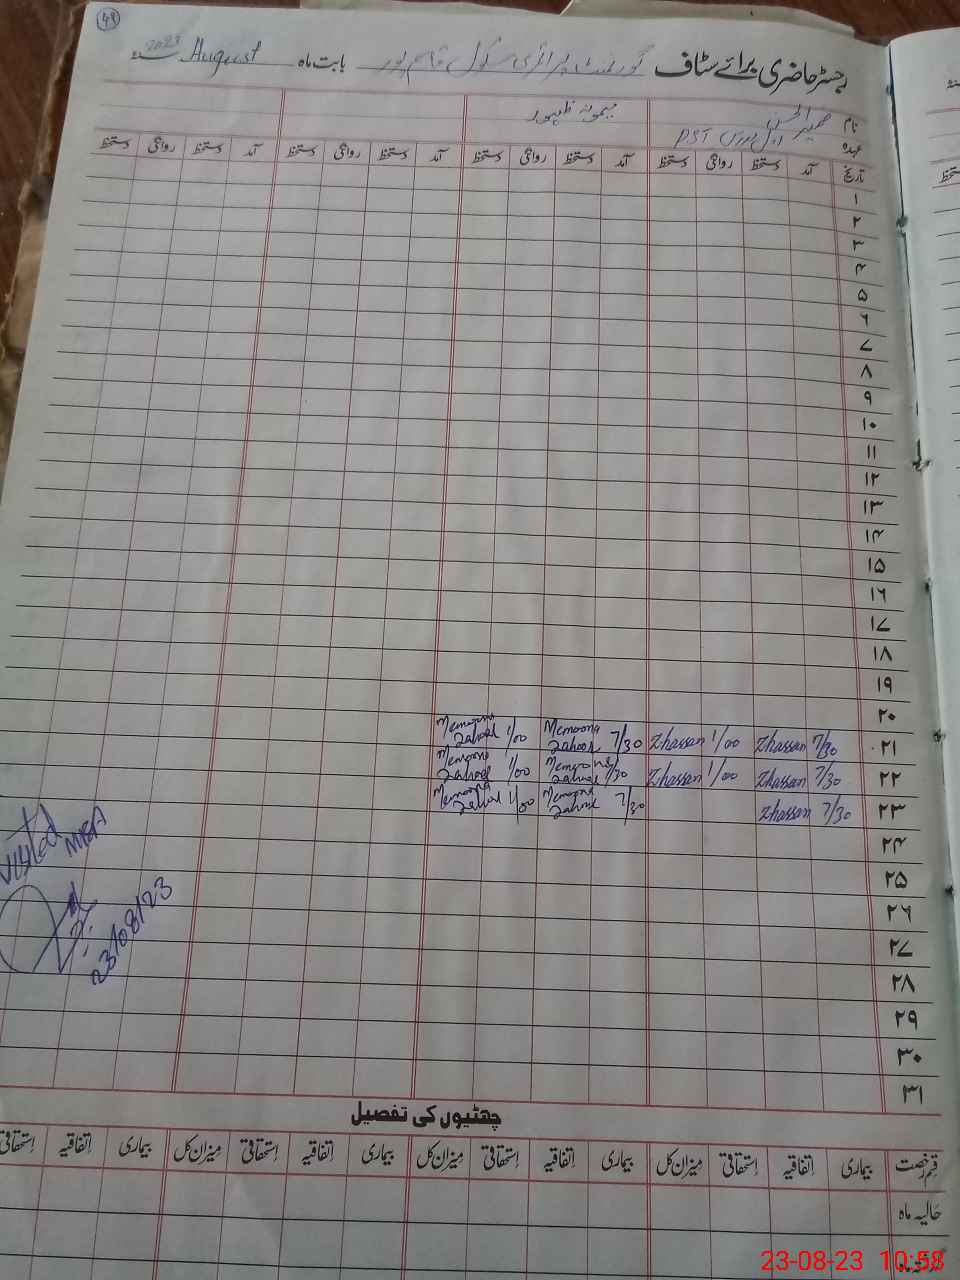 49
رجسٹر حاضری برائے سٹاف گورنمنٹ پرائمری سکول قاسم پور بابت ماہ August 2023
نام ضمیر الحسن میمونہ ظہور
عہدہ PST
تاریخ آمد دستخط روانگی دستخط آمد دستخط روانگی دستخط آمد دستخط روانگی دستخط آمد دستخط روانگی دستخط
۱
۲
۳
۴
۵
۶
۷
۸
۹
۱۰
۱۱
۱۲
۱۳
۱۴
۱۵
۱۶
۱۷
۱۸
۱۹
۲۰
۲۱ 7/30 Zhassan 1/00 Zhassan 7/30 Memoona Zahoor 1/00 Memoona Zahoor
۲۲ 7/30 Zhassan 1/00 Zhassan 7/30 Memoona Zahoor 1/00 Memoona Zahoor
۲۳ 7/30 Zhassan 7/30 Memoona Zahoor 1/00 Memoona Zahoor
۲۴
۲۵
۲۶
۲۷
۲۸
۲۹
۳۰
۳۱
Visited
MEA
23/08/23
چھٹیوں کی تفصیل
قسم رخصت بیماری اتفاقیہ استحقاقی میزان کل بیماری اتفاقیہ استحقاقی میزان کل بیماری اتفاقیہ استحقاقی میزان کل بیماری اتفاقیہ استحقاقی
حالیہ ماہ
23-08-23 10:58